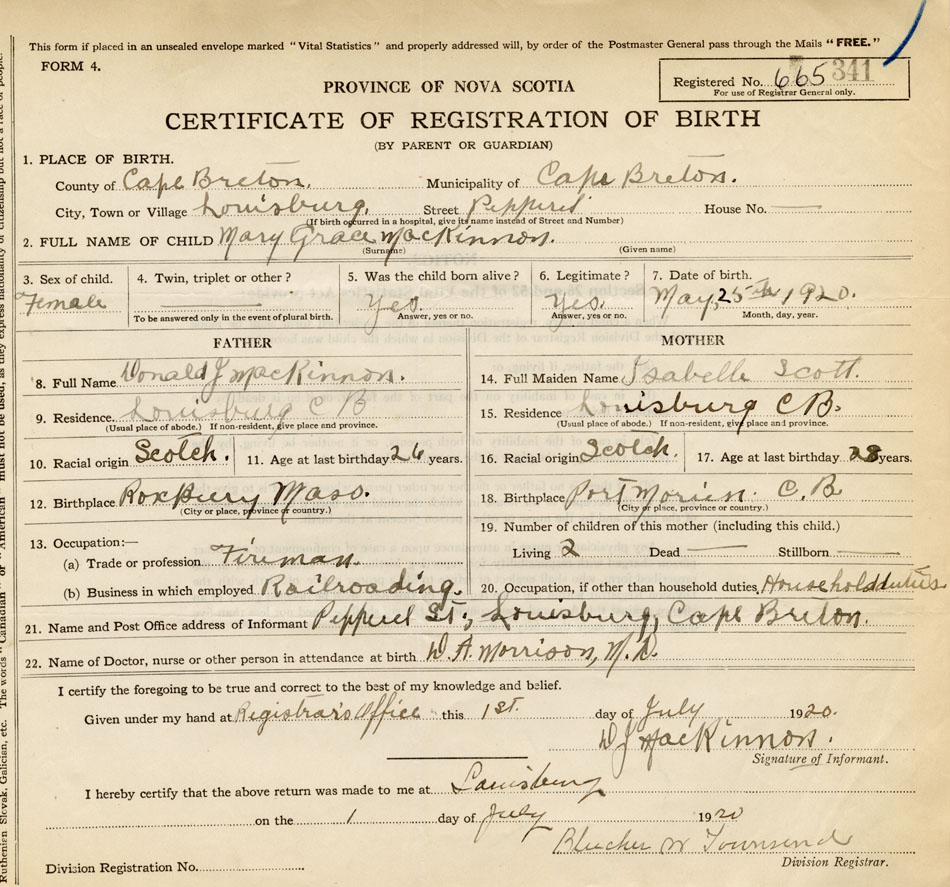 This form if placed in an unsealed envelope marked "Vital Statistics" and properly addressed will, by order of the Postmaster General pass through the Mails "FREE."
FORM 4.
Registered No. 665 341
For use of Registrar General only.
PROVINCE OF NOVA SCOTIA
CERTIFICATE OF REGISTRATION OF BIRTH
(BY PARENT OR GUARDIAN)
1. PLACE OF BIRTH.
County of Cape Breton. Municipality of Cape Breton.
City, Town or Village Louisburg, Street Pepperel House No. —
(If birth occurred in a hospital, give its name instead of Street and Number)
2. FULL NAME OF CHILD Mary Grace MacKinnon.
(Surname) (Given name)
3. Sex of child. 4. Twin, triplet or other? 5. Was the child born alive? 6. Legitimate? 7. Date of birth.
Female — Yes. Yes. May, 25th, 1920.
To be answered only in the event of plural birth. Answer, yes or no. Answer, yes or no. Month, day, year.
FATHER MOTHER
8. Full Name Donald J MacKinnon. 14. Full Maiden Name Isabelle Scott.
9. Residence. Louisburg C B 15. Residence Louisburg C B.
(Usual place of abode.) If non-resident, give place and province. (Usual place of abode.) If non-resident, give place and province.
10. Racial origin Scotch. 11. Age at last birthday 26 years. 16. Racial origin Scotch. 17. Age at last birthday 28 years.
12. Birthplace Roxbury Mass. 18. Birthplace Port Morien. C. B
(City or place, province or country.) (City or place, province or country.)
19. Number of children of this mother (including this child.)
13. Occupation:—
(a) Trade or profession Fireman. Living 2 Dead — Stillborn —
(b) Business in which employed Railroading. 20. Occupation, if other than household duties, Household duties
21. Name and Post Office address of Informant Pepperel St., Louisburg, Cape Breton.
22. Name of Doctor, nurse or other person in attendance at birth D. A. Morrison, M. D.
I certify the foregoing to be true and correct to the best of my knowledge and belief.
Given under my hand at Registrar's Office this 1st. day of July 1920.
D J MacKinnon.
Signature of Informant.
I hereby certify that the above return was made to me at Louisburg
on the 1 day of July 1920
Blucher W Townsend
Division Registrar.
Division Registration No.